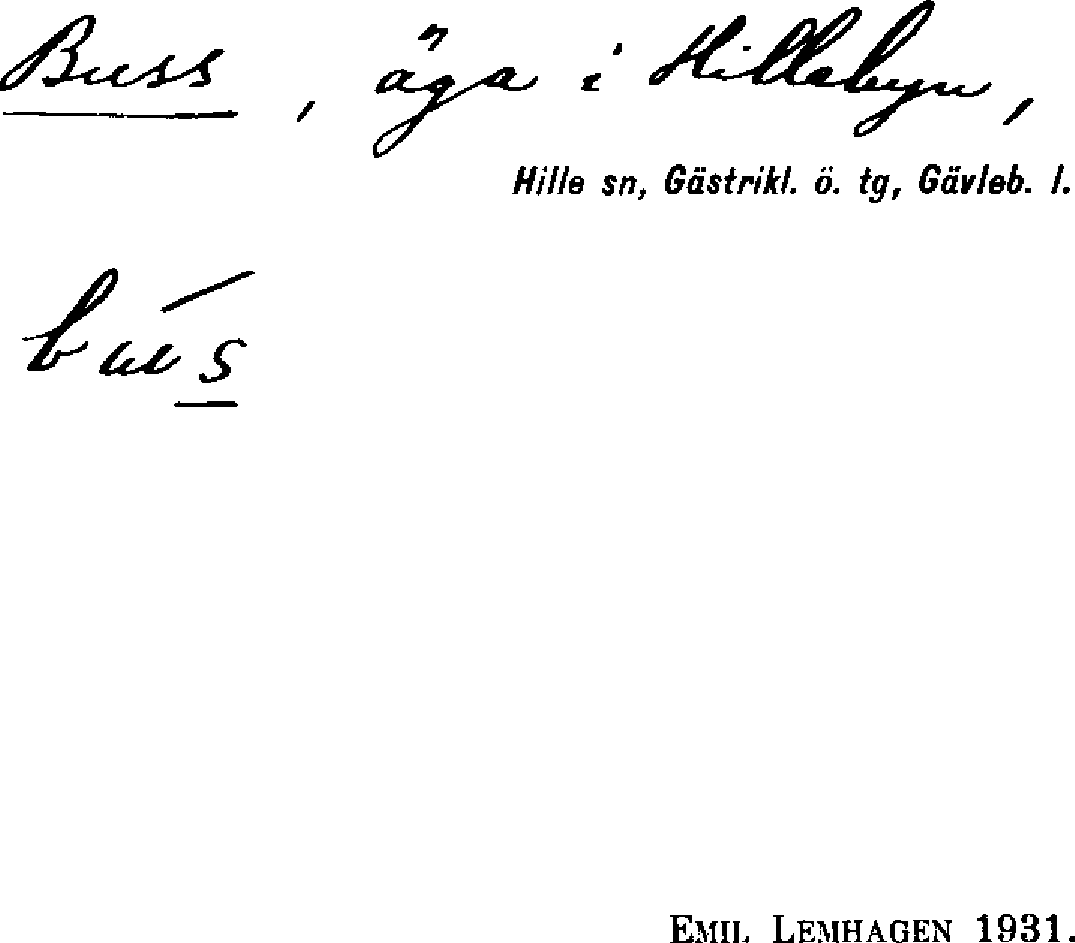 Buss, äga i Hillebyn,
Hille sn, Gästrikl. ö. tg, Gävleb. l.
bús
EMIL LEMHAGEN 1931.